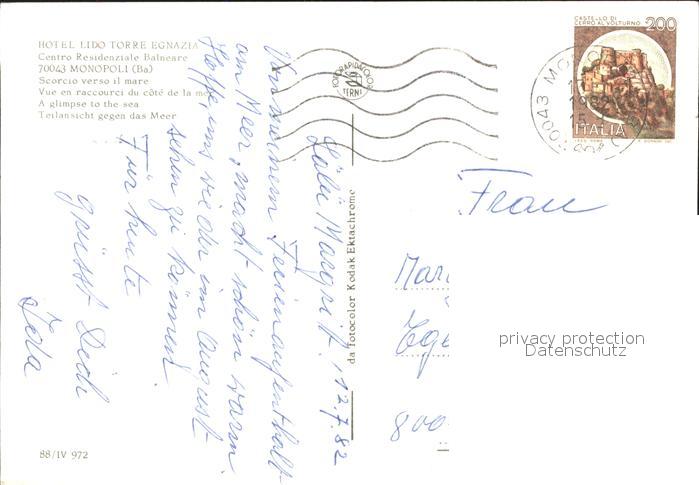 HOTEL LIDO TORRE EGNAZIA
Centro Residenziale Balneare
70043 MONOPOLI (Ba)
Scorcio verso il mare
Vue en raccourci du côté de la mer
A glimpse to the sea
Teilansicht gegen das Meer
Margrit, 12.7.82
Von meinem Ferienaufenthalt
am Meer, macht schön warm.
Hoffe, uns wieder im August
sehen zu können.
Für heute
grüsst Dich
88/IV 972
da fotocolor Kodak Ektachrome
FOTORAPIDACOLOR
TERNI
CASTELLO DI
CERRO AL VOLTURNO
200
ITALIA
70043
1982
Frau
Mar
Ege
800
privacy protection
Datenschutz